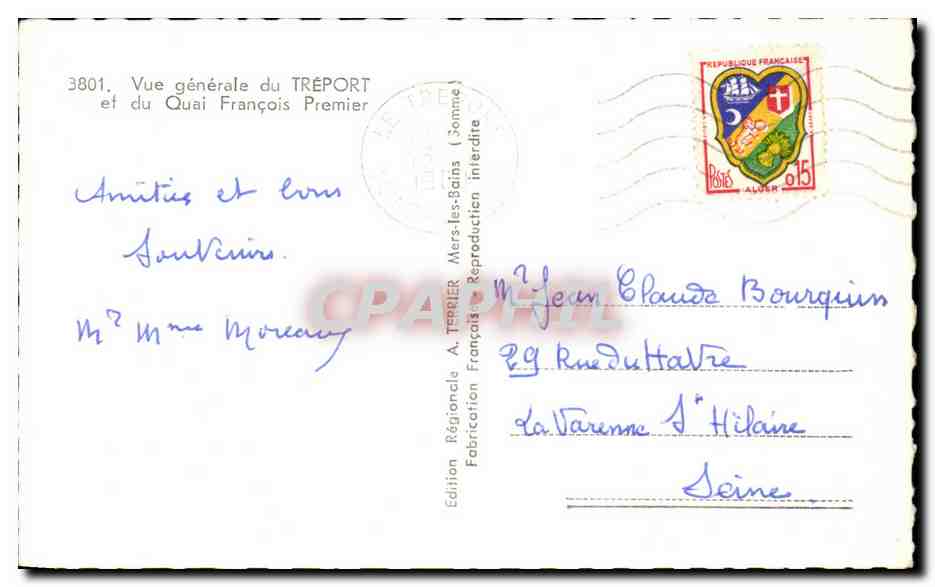 3801. Vue générale du TRÉPORT
et du Quai François Premier
Amitiés et bons
Souvenirs.
Mr Mme Moreau
Edition Régionale A. TERRIER Mers-les-Bains (Somme)
Fabrication Française - Reproduction interdite
LE TREPORT
REPUBLIQUE FRANÇAISE
POSTES
0,15
ALGER
CPAPHIL
Mr Jean Claude Bourquin
29 Rue du Havre
La Varenne St Hilaire
Seine.